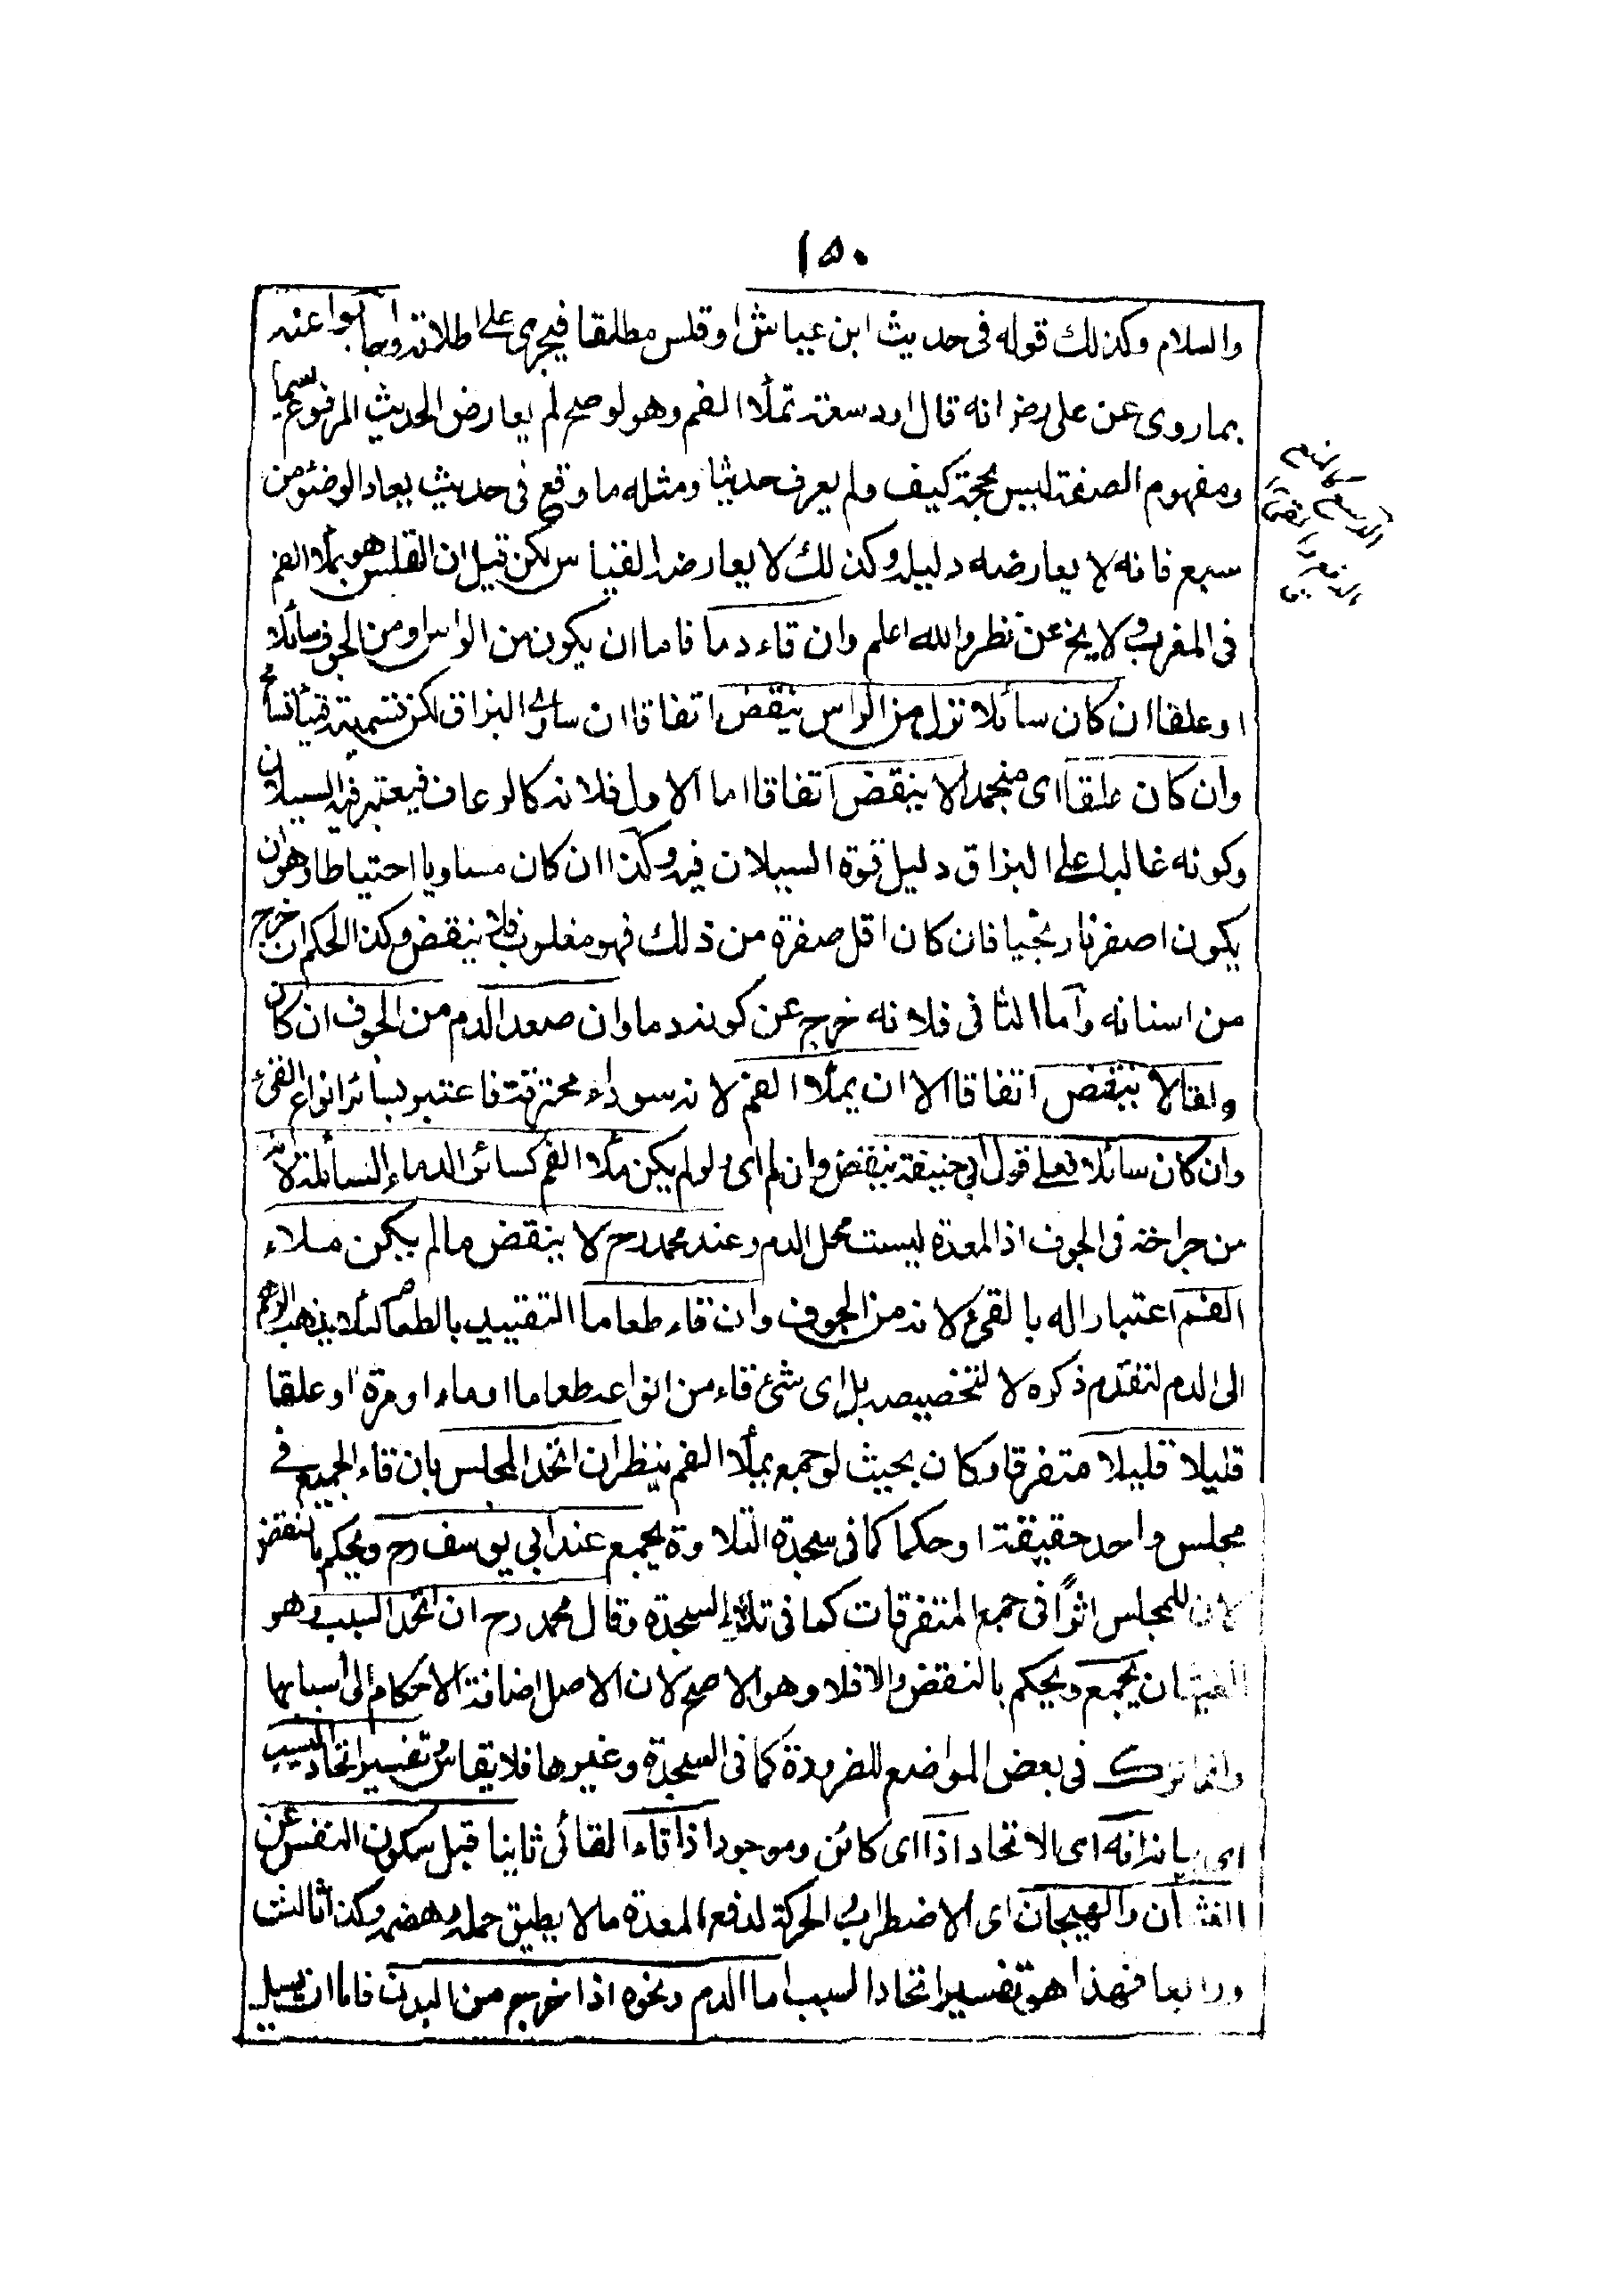 ١٥٠
والسلام وكذلك قوله فى حديث ابن عياش او قلس مطلقا فيجرى على اطلاقه واجابوا عنه
بما روى عن على رضز انه قال او دسعة تملأ الفم وهو لو صح لم يعارض الحديث المرفوع سيما
ومفهوم الصفة ليس بحجة كيف ولم يعرف حديثا ومثله ما وقع فى حديث يعاد الوضوء من
سبع فانه لا يعارضه دليله وكذلك لا يعارضه القياس لكن قيل ان القلس هو بملأ الفم
فى المغرب ولا يخ عن نظر والله اعلم وان قاء دما فاما ان يكون من الراس او من الجوف سائلا
او علقا ان كان سائلا نزل من الراس ينقض اتفاقا ان ساوى البزاق لكن تسميته قيئا تسامح
وان كان علقا اى منجمدا لا ينقض اتفاقا اما الاول فلانه كالرعاف فيعتبر فيه السيلان
وكونه غالبا على البزاق دليل قوة السيلان فيه وكذا ان كان مساويا احتياطا وهو ان
يكون اصفر نارنجيا فان كان اقل صفرة من ذلك فهو مغلوب فلا ينقض وكذا الحكم ان خرج
من اسنانه وأما الثانى فلانه خرج عن كونه دما وان صعد الدم من الجوف ان كان
علقا لا ينقض اتفاقا الا ان يملأ الفم لانه سوداء محترقة فاعتبر بسائر انواع القئ
وان كان سائلا فعلى قول ابى حنيفة ينقض وان لم اى ولو لم يكن ملأ الفم كسائر الدماء السائلة لانه
من جراحة فى الجوف اذ المعدة ليست محل الدم وعند محمد رح لا ينقض ما لم يكن ملاء
الفم اعتبارا له بالقئ لانه من الجوف وان قاء طعاما التقييد بالطعام لئلا يذهب الوهم
الى الدم لتقدم ذكره لا لتخصيصه بل اى شئ قاء من انواعه طعاما او ماء او مرة او علقا
قليلا قليلا متفرقا وكان بحيث لو جمع يملأ الفم ينظر ان اتحد المجلس بان قاء الجميع فى
مجلس واحد حقيقة او حكما كما فى سجدة التلاوة يجمع عند ابى يوسف رح ويحكم بالنقض
لان للمجلس اثرًا فى جمع المتفرقات كما فى تلاوة السجدة وقال محمد رح ان اتحد السبب وهو
الغثيان يجمع ويحكم بالنقض والا فلا وهو الاصح لان الاصل اضافة الاحكام الى أسبابها
وانما ترك فى بعض المواضع للضرورة كما فى السجدة وغيرها فلا يقاس وتفسير اتحاد السبب
اى بيانه انه اى الاتحاد اذا اى كائن وموجود اذا قاء القائى ثانيا قبل سكون النفس عن
الغثيان والهيجان اى الاضطراب والحركة لدفع المعدة ما لا يطيق حمله وهضمه وكذا ثالثا
ورابعا فهذا هو تفسير اتحاد السبب اما الدم ونحوه اذا خرج من البدن فاما ان يسيل